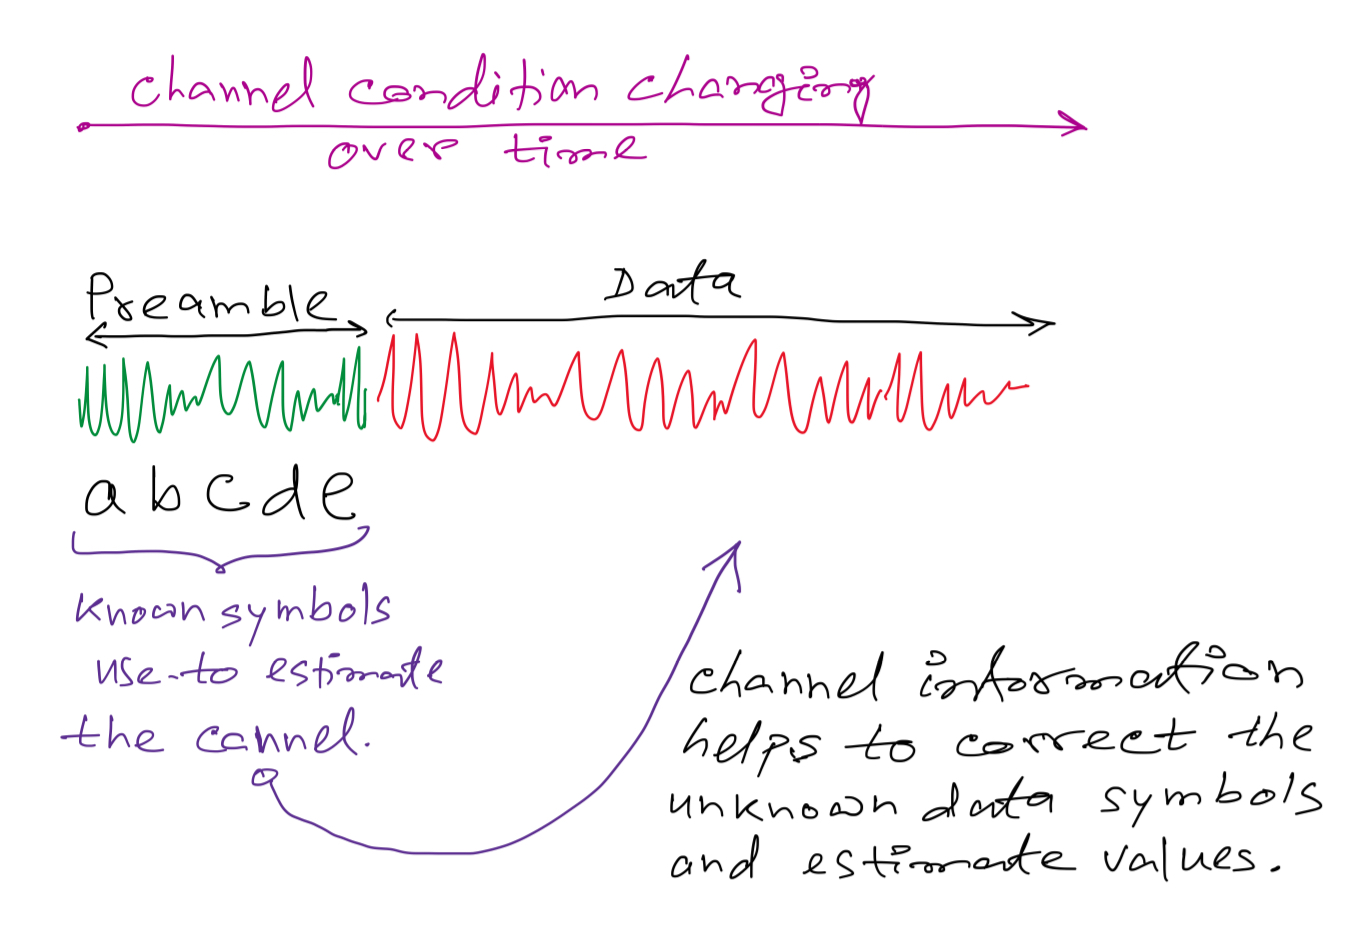 channel condition changing
over time
Preamble
Data
a b c d e
known symbols
use to estimate
the cannel.
channel information
helps to correct the
unknown data symbols
and estimate values.